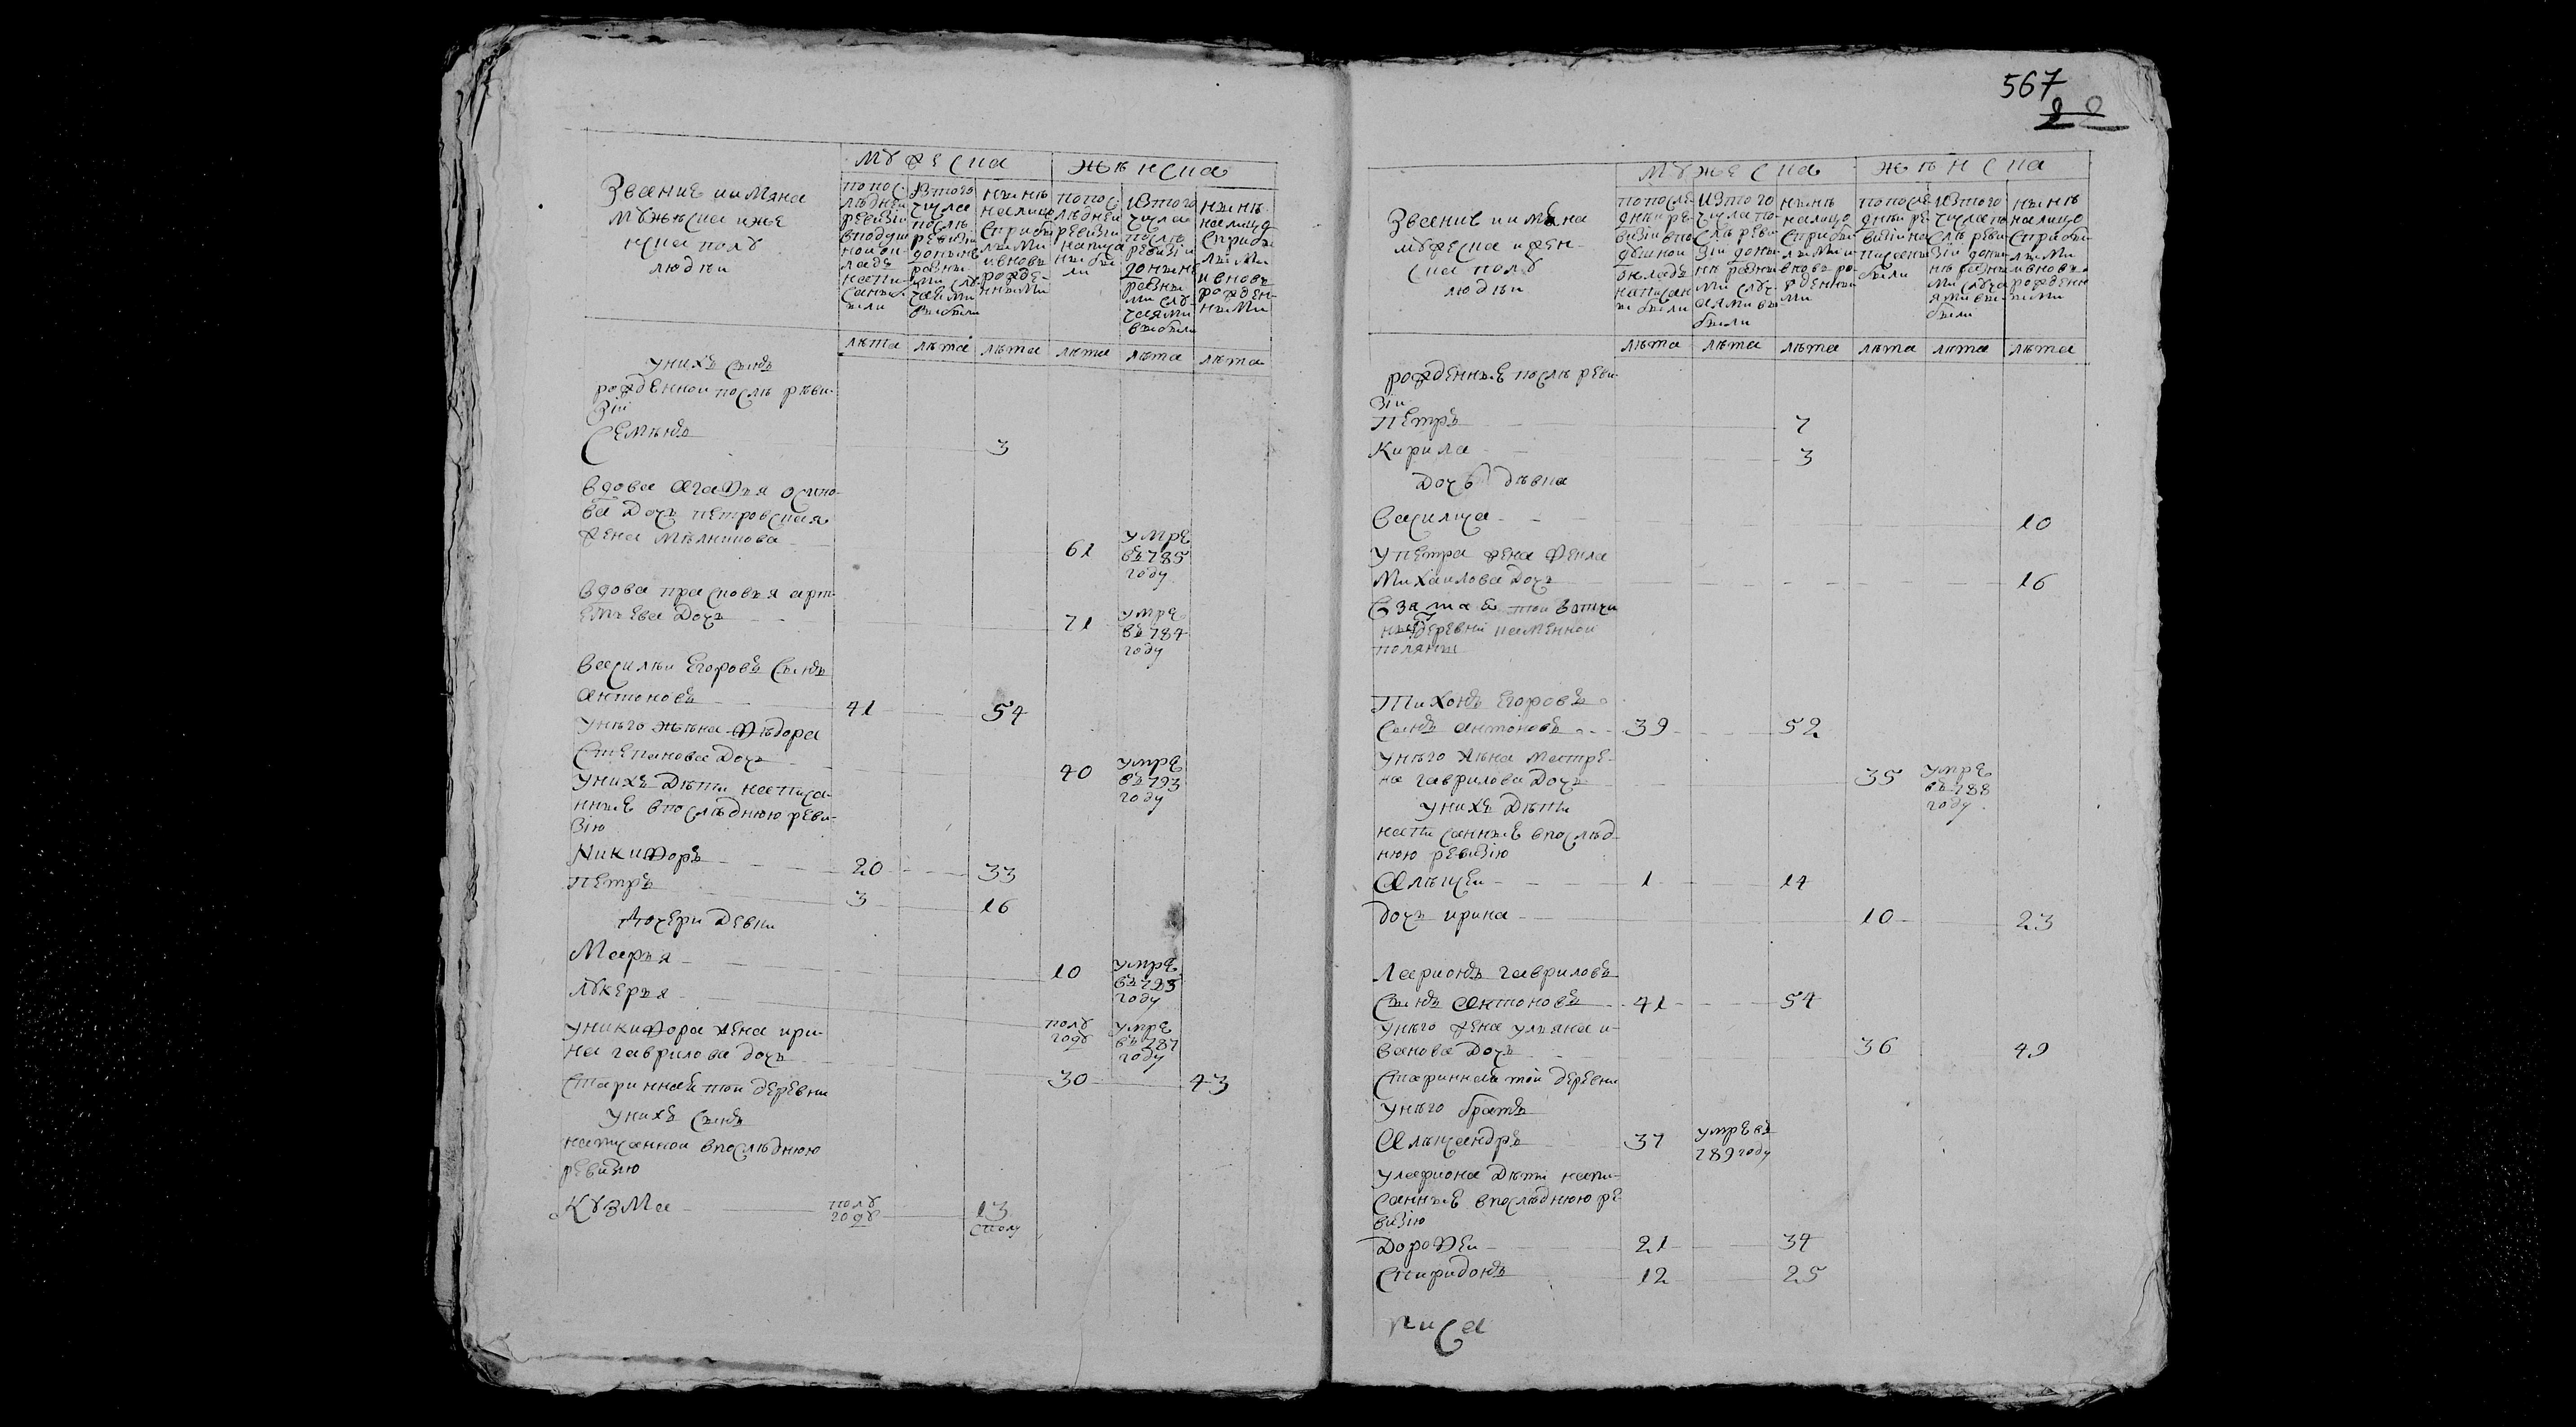 Звание и имяна
мужеска и же
нска полу
людеи
мужеска
женска
по пос-
ледней
ревизіи
в подуш
ном ок-
ладе
напи-
саны
были
из того
числа
после
ревизіи
до ныне
разны-
ми слу-
чаями
выбыли
ныне
на лицо
с прибы
лыми
и вновь
рожде-
нными
по пос-
ледней
ревизіи
написа
ны бы
ли
из того
числа
после
ревизіи
до ныне
разны
ми слу-
чаями
выбыли
ныне
на лицо
с прибы
лыми
и вновь
рожден-
ными
лѣта лѣта лѣта лѣта лѣта лѣта
у нихъ сынъ
рожденной послѣ реви-
зіи
Семенъ 3
вдова агафья осипо-
ва дочь петровская
жена мелникова 61 умре въ 785 году
вдова прасковья арт-
емьева дочь 71 умре въ 784 году
василеи егоровъ сынъ
антоновъ 41 54
у него жена федора
степанова дочь 40 умре въ 793 году
у нихъ дети написа-
нные в последнюю реви-
зію
Никифоръ 20 33
петръ 3 16
дочери девки
Марья 10 умре въ 795 году
лукерья полу году умре въ 787 году
у никифора жена ири-
на гаврилова дочь 30 43
старинная той деревни
у нихъ сынъ
написанной в последнюю
ревизію
Кузма полу году 13 с полу
567
22
Звание и имена
мужеска и жен-
ска полу
людеи
мужеска
женска
по после-
дней ре-
визіи в по
душной
окладъ
написан
ы были
из того
числа по-
сле реви
зіи доны
не разны
ми случ-
аями вы
были
ныне
на лицо
с прибы-
лыми и
вновь ро-
жденны
ми
по после-
дней ре-
визіи на
писаны
были
из того
числа по
сле реви
зіи доны
не разны
ми случа
ями вы-
были
ныне
на лицо
с прибы-
лыми
и вновь
рожденн
ыми
лѣта лѣта лѣта лѣта лѣта лѣта
рожденные послѣ реви-
зіи
петръ 7
Кирила 3
дочь девка
василиса 10
у петра жена фекла
михаилова дочь 16
взята той вотчи
ны деревни каменной
поляны
Тихонъ егоровъ
сынъ антоновъ 39 52
у него жена матре-
на гаврилова дочь 35 умре въ 788 году
у нихъ дети
написанные в послед-
нюю ревизію
Алексеи 1 14
дочь ирина 10 23
Ларионъ гавриловъ
сынъ антоновъ 41 54
у него жена ульяна и-
ванова дочь 36 49
старинная той деревни
у него братъ
Александръ 37 умре въ 789 году
у лариона дети напи-
санные в последнюю ре-
визію
Дорофеи 21 34
Спиридонъ 12 25